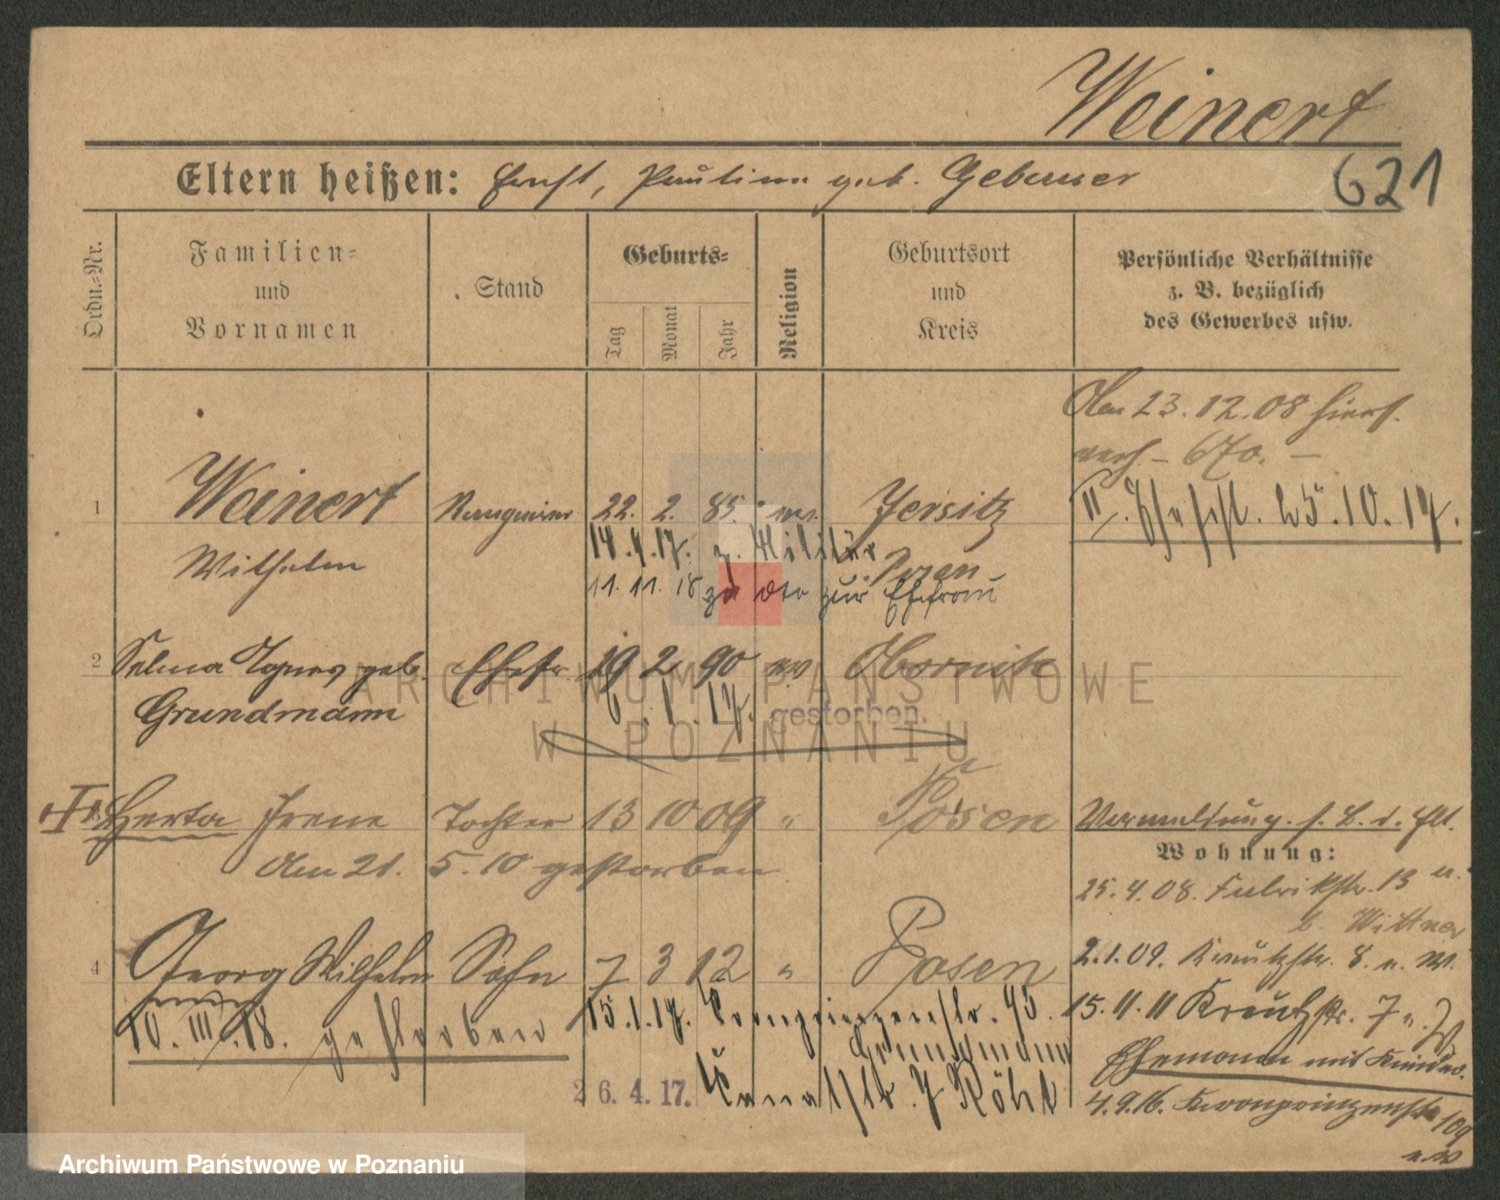 Weinert
621
Eltern heißen: Ernst, Pauline geb. Gebauer
Ordn.-Nr.
Familien-
und
Vornamen
Stand
Geburts-
Tag
Monat
Jahr
Religion
Geburtsort
und
Kreis
Persönliche Verhältnisse
z. B. bezüglich
des Gewerbes usw.
Am 23.12.08 hiers.
verh. – 670. –
1 Weinert 22. 2. 85. ev. Jersitz
II/. Ehesch. 25.10.17.
Wilhelm
14.4.17. z. Militär
Posen
11.11.18 zur Ehefrau
2 Selma Agnes geb. Ehefr. 19 2 90 ev Obornik
Grundmann
6.1.17. gestorben.
Herta Irene Tochter 13 10 09 " Posen
Am 21. 5. 10 gestorben
Wohnung:
25.4.08. Fabrikstr. 13
b. Wittner
4 Georg Wilhelm Sohn 7 3 12 " Posen
2.1.09. 8. u. W.
10. III. 18. gestorben
15.1.17. Kronprinzenstr. 93.
Grundmann
15.11.11 7 u. W
Ehemann mit Kinder.
26.4.17. Kanalstr. 7 Röhl
4.9.16. Kronprinzenstr 109
u. W
ARCHIWUM PAŃSTWOWE
W POZNANIU
Archiwum Państwowe w Poznaniu